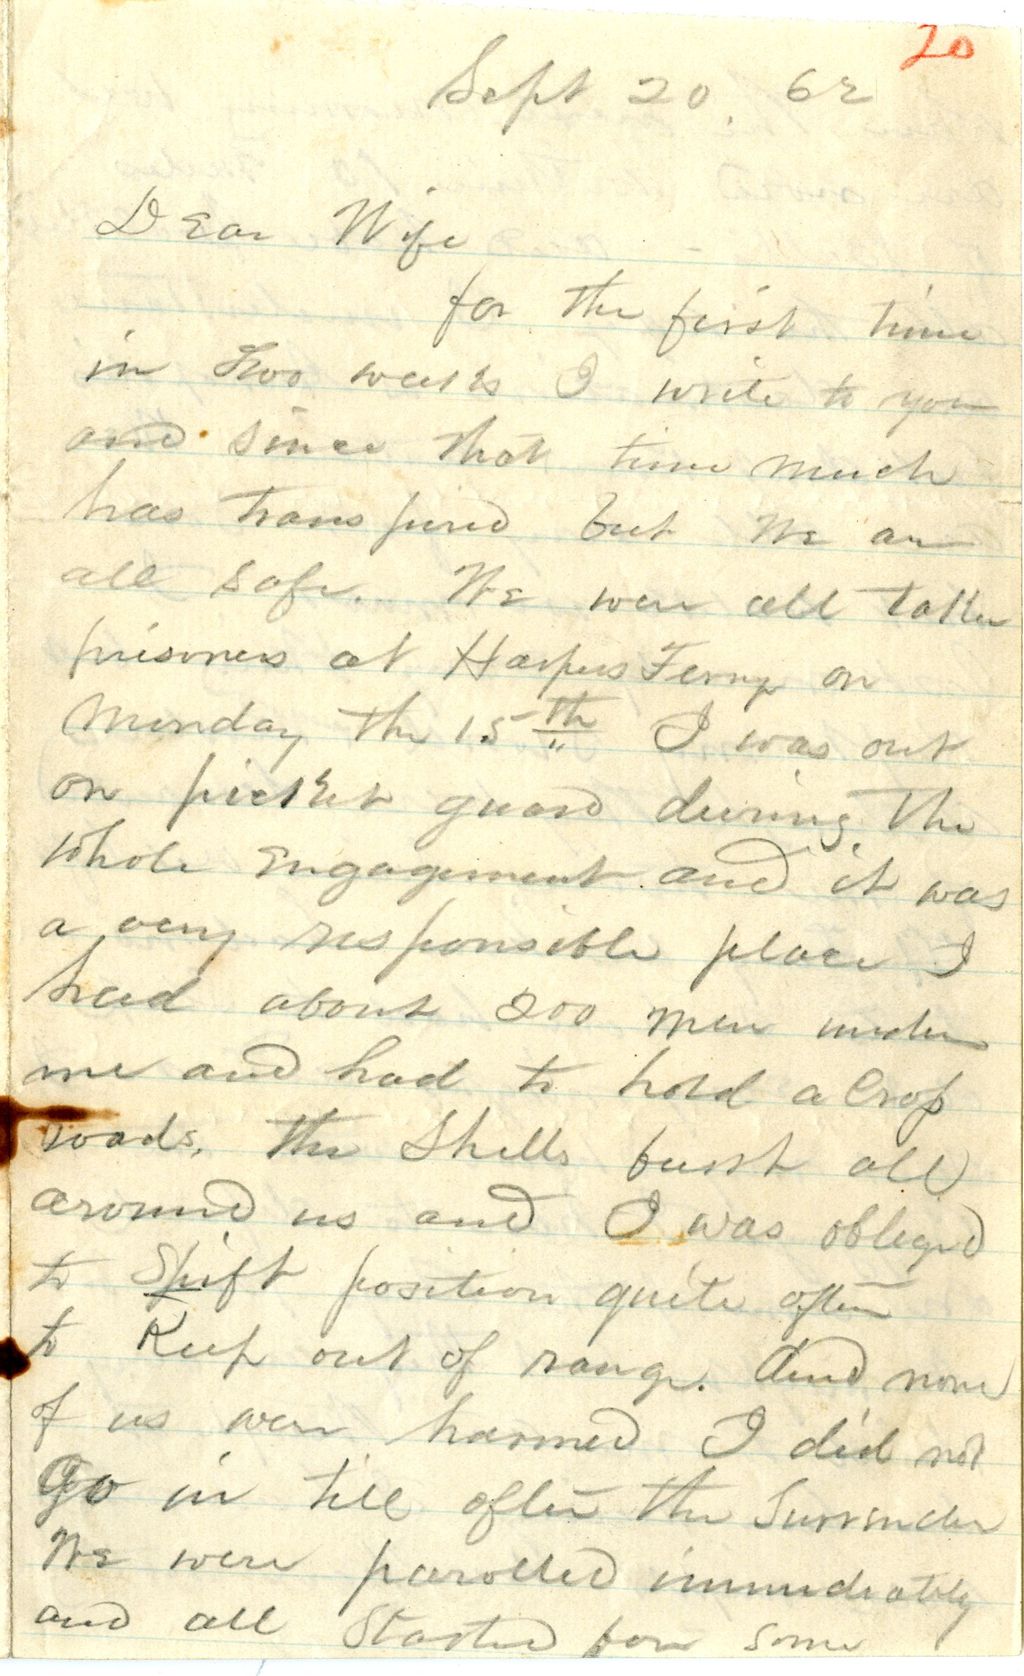 20
Sept 20. 62
Dear Wife
for the first time
in Two weeks I write to you
and since that time much
has transpired but We are
all safe. We were all taken
prisoners at Harpers Ferry on
Monday the 15th I was out
on picket guard during the
whole Engagement and it was
a very responsible place I
had about 200 men under
me and had to hold a Cross
roads. the Shells burst all
around us and I was obleged
to Shift position quite often
to Keep out of range. And none
of us were harmed I did not
Go in till after the Surrender
We were parolled immediately
and all Started for some